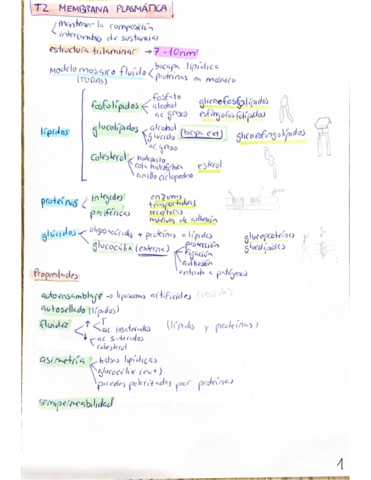 T2 MEMBRANA PLASMÁTICA
mantener la composición
intercambio de sustancias
estructura trilaminar → 7-10nm
modelo mosaico fluido bicapa lipídica
(TODAS) proteínas en mosaico
lípidos
fosfolípidos fosfato
alcohol
ac graso
glicerofosfolípidos
esfingofosfolípidos
glucolípidos alcohol
glúcido
ac graso
(bicapa ext)
glicoesfingolípidos
colesterol hidroxilo
cola hidrofóbica
anillo ciclopentano
esterol
proteínas integrales
periféricas
enzimas
transportadoras
receptoras
moléculas de adhesión
glúcidos oligosacáridos + proteínas o lípidos
glucoproteínas
glucolípidos
glucocálix (externa) protección
fijación
adhesión
entrada a patógenos
Propiedades:
autoensamblaje → liposomas artificiales
autosellado (lípidos)
fluidez ↑ T
ac. insaturados
↓ ac. saturados
colesterol
(lípidos y proteínas)
asimetría
lipídicas
glucocálix
por proteínas
semipermeabilidad
1